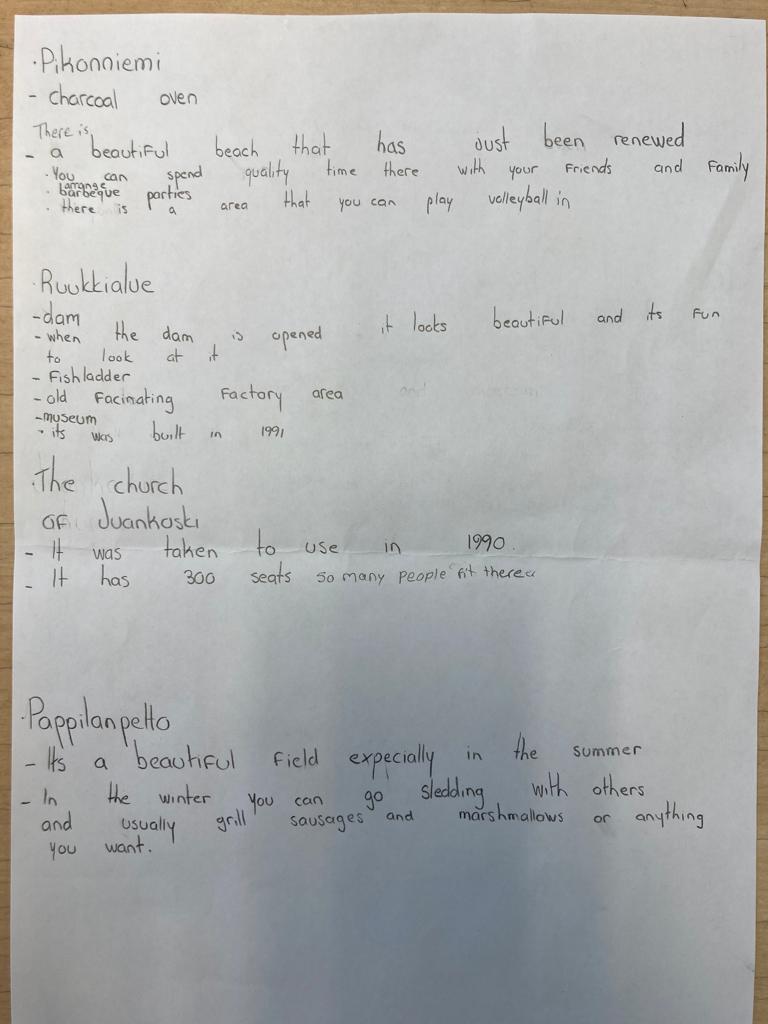 ·Pikonniemi
- charcoal oven
There is
- a beautiful beach that has just been renewed
· You can spend quality time there with your Friends and Family
arrange
· barbeque parties
· there is a area that you can play volleyball in
·Ruukkialue
-dam
-when the dam is opened it looks beautiful and its fun
to look at it
- Fishladder
-old Facinating Factory area
-museum
· its was built in 1991
·The church
OF Juankoski
- It was taken to use in 1990.
- It has 300 seats so many people fit there
·Pappilanpelto
- Its a beautiful Field expecially in the summer
- In the winter you can go sledding with others
and usually grill sausages and marshmallows or anything
you want.